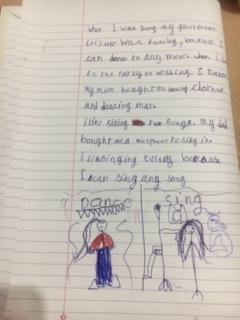 When I was young my favourite
leisure was dancing, because I
can dance to any moves when I
to the party or wedding. I Dance
my mum bought me dancing clothes
and dancing mat.
I like sizing two songs. My dad
bought me a to sing in
I like singing because
I can sing any song
Dance
sing